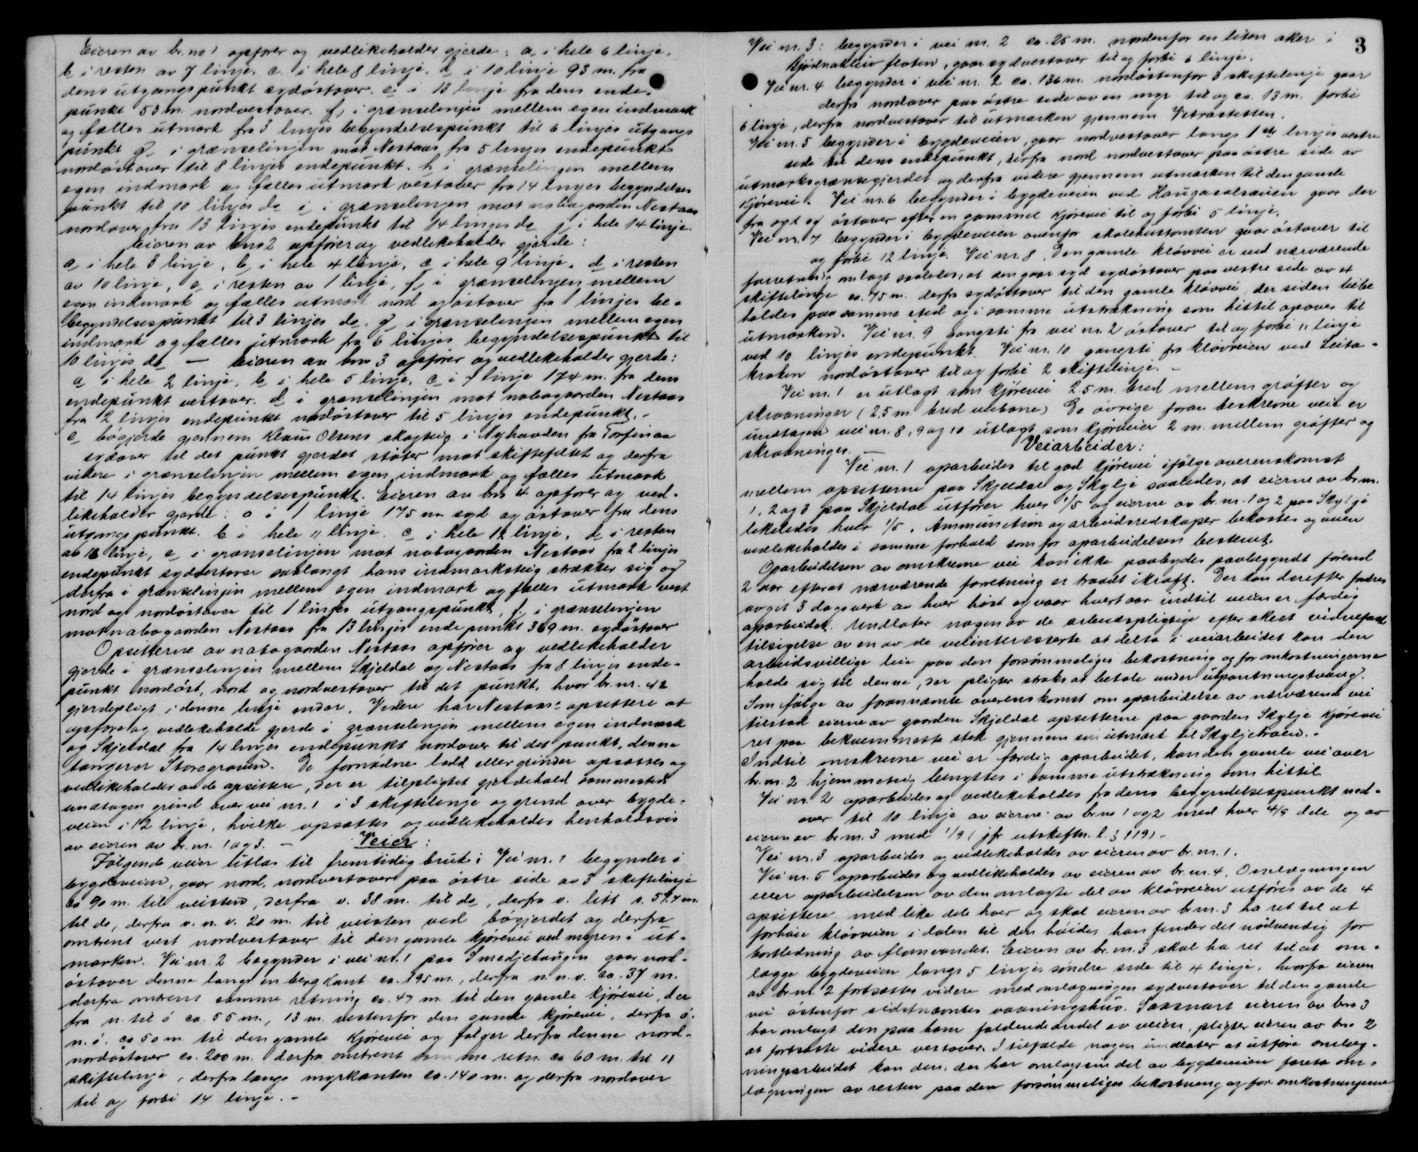 Eieren av br.no 1 opfører og vedlikeholder gjerde: a i hele 6 linje,
b i resten av 7 linje, c i hele 8 linje, d i 10 linje 93 m. fra
dens utgangspunkt sydøstover. e i 13 linje fra dens ende-
punkt 53 m. nordvestover. f i grænselinjen mellem egen indmark
og fælles utmark fra 3 linjes begyndelsespunkt til 6 linjes utgangs
punkt g i grænselinjen mot Nestaas fra 5 linjes endepunkt
nordøstover til 8 linjes endepunkt. h i grænselinjen mellem
egen indmark og fælles utmark vestover fra 14 linjes begyndelses
punkt til 10 linjes do i i grænselinjen mot nabogaarden Nestaas
nordover fra 13 linjes endepunkt til 14 linjes do j i hele 14 linje.
Eieren av bno 2 opfører og vedlikeholder gjerde:
a i hele 3 linje, b i hele 4 linje, c i hele 9 linje. d i resten
av 10 linje, e i resten av 1 linje, f i grænselinjen mellem
egen indmark og fælles utmark nord og østover fra 1 linjes be-
begyndelsespunkt til 3 linjes do. g i grænselinjen mellem egen
indmark og fælles utmark fra 6 linjes begyndelsespunkt til
10 linjes do — Eieren av bno 3 opfører og vedlikeholder gjerde:
a i hele 2 linje, b i hele 5 linje, c i 7 linje 174 m. fra dens
endepunkt vestover. d i grænselinjen mot nabogaarden Nestaas
fra 2 linjes endepunkt nordøstover til 5 linjes endepunkt. -
e bøgjerde gjennem Klaus Olsens skogteig i Nyhavden fra Torfinaa
sydover til det punkt gjerdet støter mot skiftefeltet og derfra
videre i grænselinjen mellem egen indmark og fælles utmark
til 14 linjes begyndelsespunkt. Eieren av bno 4 opfører og ved-
likeholder gjerde: a i 1 linje 175 m syd og østover fra dens
utgangspunkt. b i hele 11 linje. c i hele 12 linje, d i resten
av 13 linje, e i grænselinjen mot nabogaarden Nestaas fra 2 linjes
endepunkt sydvestover saalangt hans indmarksteig strækker sig og
derfra i grænselinjen mellem egen indmark og fælles utmark vest
nord og nordøstover til 1 linjes utgangspunkt, f i grænselinjen
mot nabogaarden Nestaas fra 13 linjes endepunkt 369 m. sydøstover
Opsitterne av nabogaarden Nestaas opfører og vedlikeholder
gjerde i grænselinjen mellem Skjeldal og Nestaas fra 8 linjes ende-
punkt nordøst, nord og nordvestover til det punkt, hvor br.nr. 4s
gjerdepligt i denne linje ender. Videre har Nestaas opsittere at
opføre og vedlikeholde gjerde i grænselinjen mellem egen indmark
og Skjeldal fra 14 linjes endepunkt nordover til det punkt, denne
tangerer Storegroven. De fornødne ledd eller grinder opsættes og
vedlikeholdes av de opsittere, der er tilpligtet gjerdehold sammesteds
undtagen grind over vei nr. 1 i 3 skiftelinje og grind over bygde-
veien i 12 linje, hvilke opsættes og vedlikeholdes henholdsvis
av eieren av br.nr. 1 og 3. - Veier:
Følgende veier utlas til fremtidig bruk: Vei nr. 1 begynder i
bygdeveien, gaar nord, nordvestover paa østre side av 3 skiftelinje
ca 90 m. til veisten, derfra v. 38 m. til do, derfra v. litt s. 57.4 m.
til do, derfra v. n. v. 20 m. til veisten ved bøgjerdet og derfra
omtrent vest nordvestover til den gamle kjørevei ved myren i ut-
marken. Vei nr. 2 begynder i vei no. 1 paa Smedjehaugen gaar nord-
østover denne langs en bergkant ca. 195 m, derfra n.n.ø. ca. 37 m.
derfra omtrent samme retning ca. 47 m. til den gamle kjørevei, der
fra n. til ø ca 55 m., 13 m. vestenfor den gamle kjørevei, derfra ø.
n. ø. ca 50 m. til den gamle kjørevei og følger derfra denne nord-
nordøstover ca. 200 m. derfra omtrent samme retn. ca 60 m. til 11
skiftelinje, derfra langs myrkanten ca. 140 m. og derfra nordover
til og forbi 14 linje. -
3
Vei nr. 3: begynder i vei nr. 2 ca. 25 m. nordenfor en liten aker i
Kjødnakleiv floten, gaar sydvestover til og forbi 6 linje.
Vei nr. 4 begynder i vei nr. 2 ca. 136 m. nordøstenfor 3 skiftelinje gaar
derfra nordover paa østre side av en myr til og ca. 13 m. forbi
6 linje, derfra nordvestover til utmarken gjennem Vetraastetten.
Vei nr. 5 begynder i bygdeveien, gaar nordvestover langs 1ste linjes vestre
side til dens endepunkt, derfra nord nordvestover paa østre side av
utmarksgrænsegjerdet og derfra videre gjennem utmarken til den gamle
kjørevei. Vei nr. 6 begynder i bygdeveien ved Haugasalsveien gaar der
fra syd og østover efter en gammel kjørevei til og forbi 5 linje.
Vei nr. 7 begynder i bygdeveien ovenfor skolehustomten gaar østover til
og forbi 12 linje. Vei nr. 8. Den gamle kløvvei er ved nærværende
forretning omlagt saaledes, at den gaar syd sydøstover paa vestre side av 4
skiftelinje ca. 75 m. derfra sydøstover til den gamle kløvvei, der siden bibe
holdes paa samme sted og i samme utstrækning som hittil opover til
utmarken. Vei nr. 9 gangsti fra vei nr. 2 østover til og forbi 11 linje
ved 10 linjes endepunkt. Vei nr. 10 gangsti fra kløvveien ved Leita-
kroken nordøstover til og forbi 2 skiftelinje. -
Vei nr. 1 er utlagt som kjørevei 2,5 m. bred mellem grøfter og
skraaninger (2,5 m. bred veibane) De øvrige foran beskrevne veie er
undtagen vei nr. 8, 9 og 10 utlagt som kjøreveier 2 m. mellem grøfter og
skraaninger. Veiarbeider:
Vei nr. 1 oparbeides til god kjørevei ifølge overenskomst
mellem opsitterne paa Skjeldal og Skylje saaledes, at eierne av br.nr.
1, 2 og 3 paa Skjeldal utfører hver 1/5 og eierne av br.nr. 1 og 2 paa Skylje
likeledes hver 1/5. Ammunition og arbeidsredskaper bekostes og veien
vedlikeholdes i samme forhold som for oparbeidelsen bestemt.
Oparbeidelsen av omskrevne vei kan ikke paabydes paabegyndt førend
2 aar efterat nærværende forretning er traadt ikraft. Der kan derefter fordres
avgit 3 dagsverk av hver høst og vaar hvert aar indtil veien er færdig
oparbeidet. Undlater nogen av de arbeidspligtige efter skeet vidnefast
tilsigelse av en av de veiinteresserte at delta i veiarbeidet kan den
arbeidsvillige leie paa den forsømmeliges bekostning og for omkostningerne
holde sig til denne, der pligter straks at betale under utpantningstvang.
Som følge av forannævnte overenskomst om oparbeidelse av nærværende vei
tilstaar eierne av gaarden Skjeldal opsitterne paa gaarden Skylje kjørevei
ret paa bekvemmeste sted gjennem sin utmark til Skyljetræen. -
Indtil omskrevne vei er færdig oparbeidet, kan den gamle vei over
br.nr. 2 hjemmeteig benyttes i samme utstrækning som hittil
Vei nr. 2 oparbeides og vedlikeholdes fra dens begyndelsespunkt nord-
over til 10 linje av eierne av br.no 1 og 2 med hver 4/9 dele og av
eieren av br.nr. 3 med 1/9 (jfr utskiftn. l. § 119). -
Vei nr. 3 oparbeides og vedlikeholdes av eieren av br.nr. 1.
Vei nr. 5 oparbeides og vedlikeholdes av eieren av br.nr. 4. Omlægningen
eller oparbeidelsen av den omlagte del av kløvveien utføres av de 4
opsittere med like dele hver og skal eieren av br.nr. 3 ha ret til at
forhøie kløvveien i dalen til den høide, han finder det nødvendig for
bortledning av flomvandet. Eieren av br.nr. 3 skal ha ret til at om-
lægge bygdeveien langs 5 linjes søndre side til 4 linje, hvorfra eieren
av br.nr. 2 fortsætter videre med omlægningen sydvestover til den gamle
vei østenfor sidstnævntes vaaningshus. Saasnart eieren av bno 3
har omlagt den paa ham faldende andel av veien, pligter eieren av bno 2
at fortsætte videre vestover. I tilfælde nogen undlater at utføre omlæg-
ningsarbeidet kan den, der har omlagt sin del av bygdeveien foreta om-
lægningen av resten paa den forsømmeliges bekostning og for omkostningerne